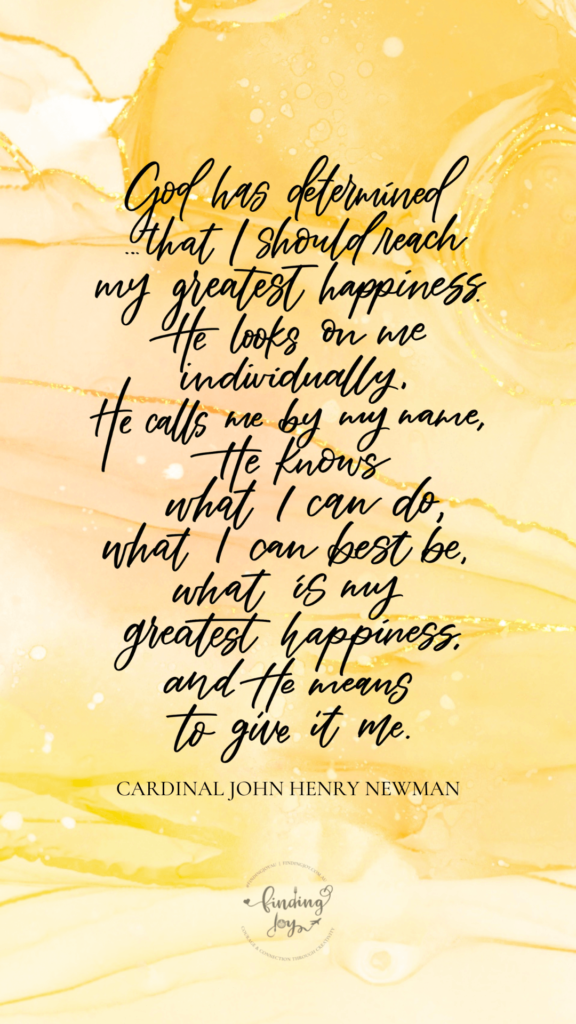 God has determined
...that I should reach
my greatest happiness.
He looks on me
individually,
He calls me by my name,
He knows
what I can do,
what I can best be,
what is my
greatest happiness,
and He means
to give it me.
CARDINAL JOHN HENRY NEWMAN
finding
Joy